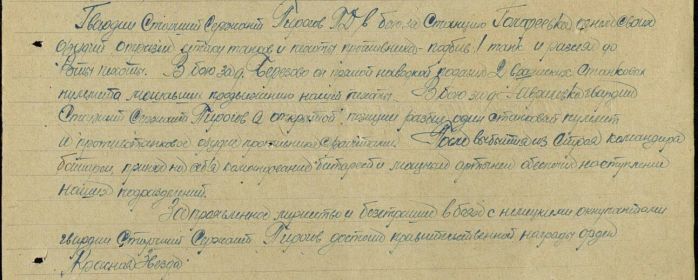 Гвардии Старший Сержант Пирогов П.Д в бою за Станцию огнем своих
орудий отразил атаку танков и пехоты противника, подбив 1 танк и рассеял до
роты пехоты. В бою за д. Березово он прямой наводкой подавил 2 вражеских Станковых
пулемета мешавших продвижению нашей пехоты. В бою за д. гвардии
Старший Сержант Пирогов с открытой позиции разбил один станковый пулемет
и противотанковое орудие противника с расчетами. После выбытия из Строя командира
батареи, принял на себя командование батареей и мощным артогнем обеспечил наступление
наших подразделений.
За проявленное мужество и безстрашие в боях с немецкими оккупантами
гвардии Старший Сержант Пирогов достоин правительственной награды орден
"Красная Звезда"